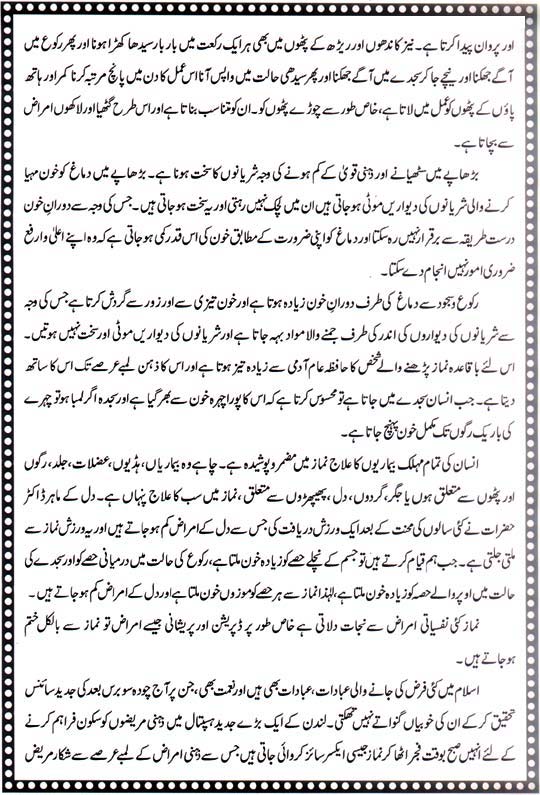 اور پروان پیدا کرتا ہے۔ نیز کاندھوں اور ریڑھ کے پٹھوں میں بھی ہر ایک رکعت میں بار بار سیدھا کھڑا ہونا اور پھر رکوع میں
آگے جھکنا اور نیچے جا کر سجدے میں آگے جھکنا اور پھر سیدھی حالت میں واپس آنا اس عمل کا دن میں پانچ مرتبہ کرنا کمر اور ہاتھ
پاؤں کے پٹھوں کو عمل میں لاتا ہے، خاص طور سے چوڑے پٹھوں کو۔ ان کو متناسب بناتا ہے اور اس طرح گٹھیا اور لاکھوں امراض
سے بچاتا ہے۔
بڑھاپے میں سٹھیانے اور ذہنی قویٰ کے کم ہونے کی وجہ شریانوں کا سخت ہونا ہے۔ بڑھاپے میں دماغ کو خون مہیا
کرنے والی شریانوں کی دیواریں موٹی ہو جاتی ہیں ان میں لچک نہیں رہتی اور یہ سخت ہو جاتی ہیں۔ جس کی وجہ سے دوران خون
درست طریقہ سے برقرار نہیں رہ سکتا اور دماغ کو اپنی ضرورت کے مطابق خون کی اس قدر کمی ہو جاتی ہے کہ وہ اپنے اعلیٰ و ارفع
ضروری امور نہیں انجام دے سکتا۔
رکوع و سجود سے دماغ کی طرف دوران خون زیادہ ہوتا ہے اور خون تیزی سے اور زور سے گردش کرتا ہے جس کی وجہ
سے شریانوں کی دیواروں کی اندر کی طرف جمنے والا مواد بہہ جاتا ہے اور شریانوں کی دیواریں موٹی اور سخت نہیں ہوتیں۔
اس لئے باقاعدہ نماز پڑھنے والے شخص کا حافظہ عام آدمی سے زیادہ تیز ہوتا ہے اور اس کا ذہن لمبے عرصے تک اس کا ساتھ
دیتا ہے۔ جب انسان سجدے میں جاتا ہے تو محسوس کرتا ہے کہ اس کا پورا چہرہ خون سے بھر گیا ہے اور سجدہ اگر لمبا ہو تو چہرے
کی باریک رگوں تک مکمل خون پہنچ جاتا ہے۔
انسان کی تمام مہلک بیماریوں کا علاج نماز میں مضمر و پوشیدہ ہے۔ چاہے وہ بیماریاں، ہڈیوں، عضلات، جلد، رگوں
اور پٹھوں سے متعلق ہوں یا جگر، گردوں، دل، پھیپھڑوں سے متعلق، نماز میں سب کا علاج پنہاں ہے۔ دل کے ماہر ڈاکٹر
حضرات نے کئی سالوں کی محنت کے بعد ایک ورزش دریافت کی جس سے دل کے امراض کم ہو جاتے ہیں اور یہ ورزش نماز سے
ملتی جلتی ہے۔ جب ہم قیام کرتے ہیں تو جسم کے نچلے حصے کو زیادہ خون ملتا ہے، رکوع کی حالت میں درمیانی حصے کو اور سجدے کی
حالت میں اوپر والے حصہ کو زیادہ خون ملتا ہے، لہٰذا نماز سے ہر حصے کو موزوں خون ملتا ہے اور دل کے امراض کم ہو جاتے ہیں۔
نماز کئی نفسیاتی امراض سے نجات دلاتی ہے خاص طور پر ڈپریشن اور پریشانی جیسے امراض تو نماز سے بالکل ختم
ہو جاتے ہیں۔
اسلام میں کئی فرض کی جانے والی عبادات، عبادات بھی ہیں اور نعمت بھی، جن پر آج چودہ سو برس بعد کی جدید سائنس
تحقیق کر کے ان کی خوبیاں گنواتے نہیں تھکتی۔ لندن کے ایک بڑے جدید ہسپتال میں ذہنی مریضوں کو سکون فراہم کرنے
کے لئے انہیں صبح بوقت فجر اٹھا کر نماز جیسی ایکسرسائز کروائی جاتی ہیں جس سے ذہنی امراض کے لمبے عرصے سے شکار مریض